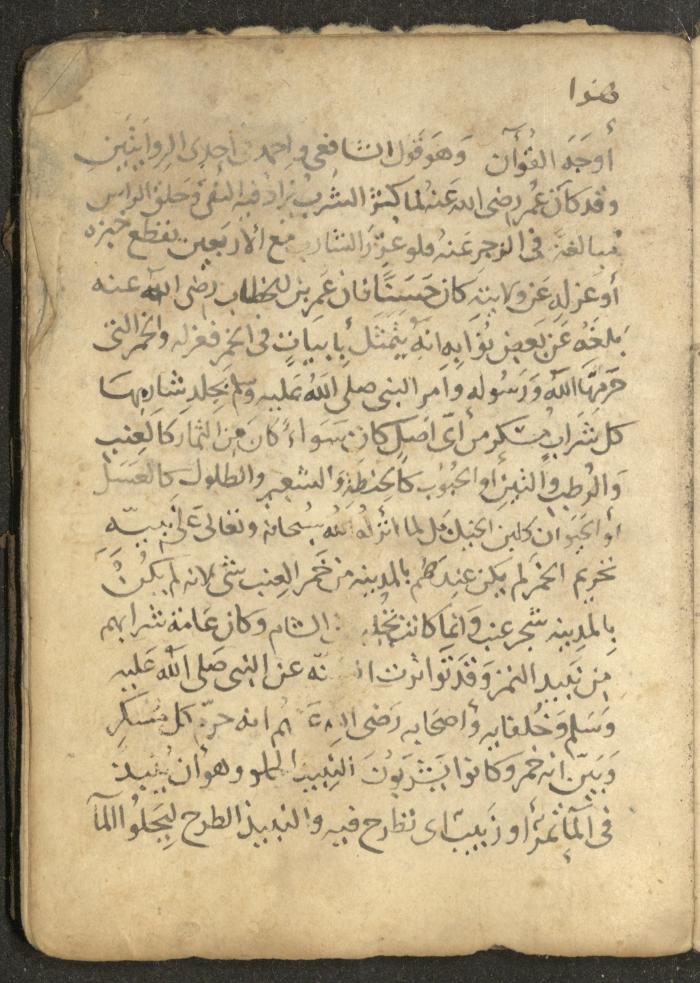 هذا
أوجه القرآن وهو قول الشافعي واحمد في احدى الروايتين
وقد كان عمر رضى الله عنه لما كثر الشرب زاد فيه النفي وحلق الراس
مبالغة في الزجر عنه فلو عزر الشارب مع الاربعين بقطع خبزه
أو عزله عن ولايته كان حسنا فان عمر بن الخطاب رضى الله عنه
بلغه عن بعض نوابه انه يتمثل بابيات في الخمر فعزله والخمر التي
حرمها الله ورسوله وامر النبى صلى الله عليه وسلم بجلد شاربها
كل شراب مسكر من أى اصل كان سواء كان من الثمار كالعنب
والرطب والتين أو الحبوب كالحنطة والشعير والطلول كالعسل
أو الحيوان كلبن الخيل بل لما انزل الله سبحانه وتعالى على نبيه
تحريم الخمر لم يكن عندهم بالمدينه من خمر العنب شئ لانه لم يكن
بالمدينه شجر عنب وانما كانت تجلب الشام وكان عامة شرابهم
من نبيد التمر وقد تواترت نه عن النبى صلى الله عليه
وسلم وخلفايه وأصحابه رضى انه حرم كل مسكر
وبين انه خمر وكانوا يشربون النبيد الحلو وهو أن ينبذ
فى المآ تمر أو زبيب اى تطرح فيه والنبيذ الطرح ليحلوا المآ